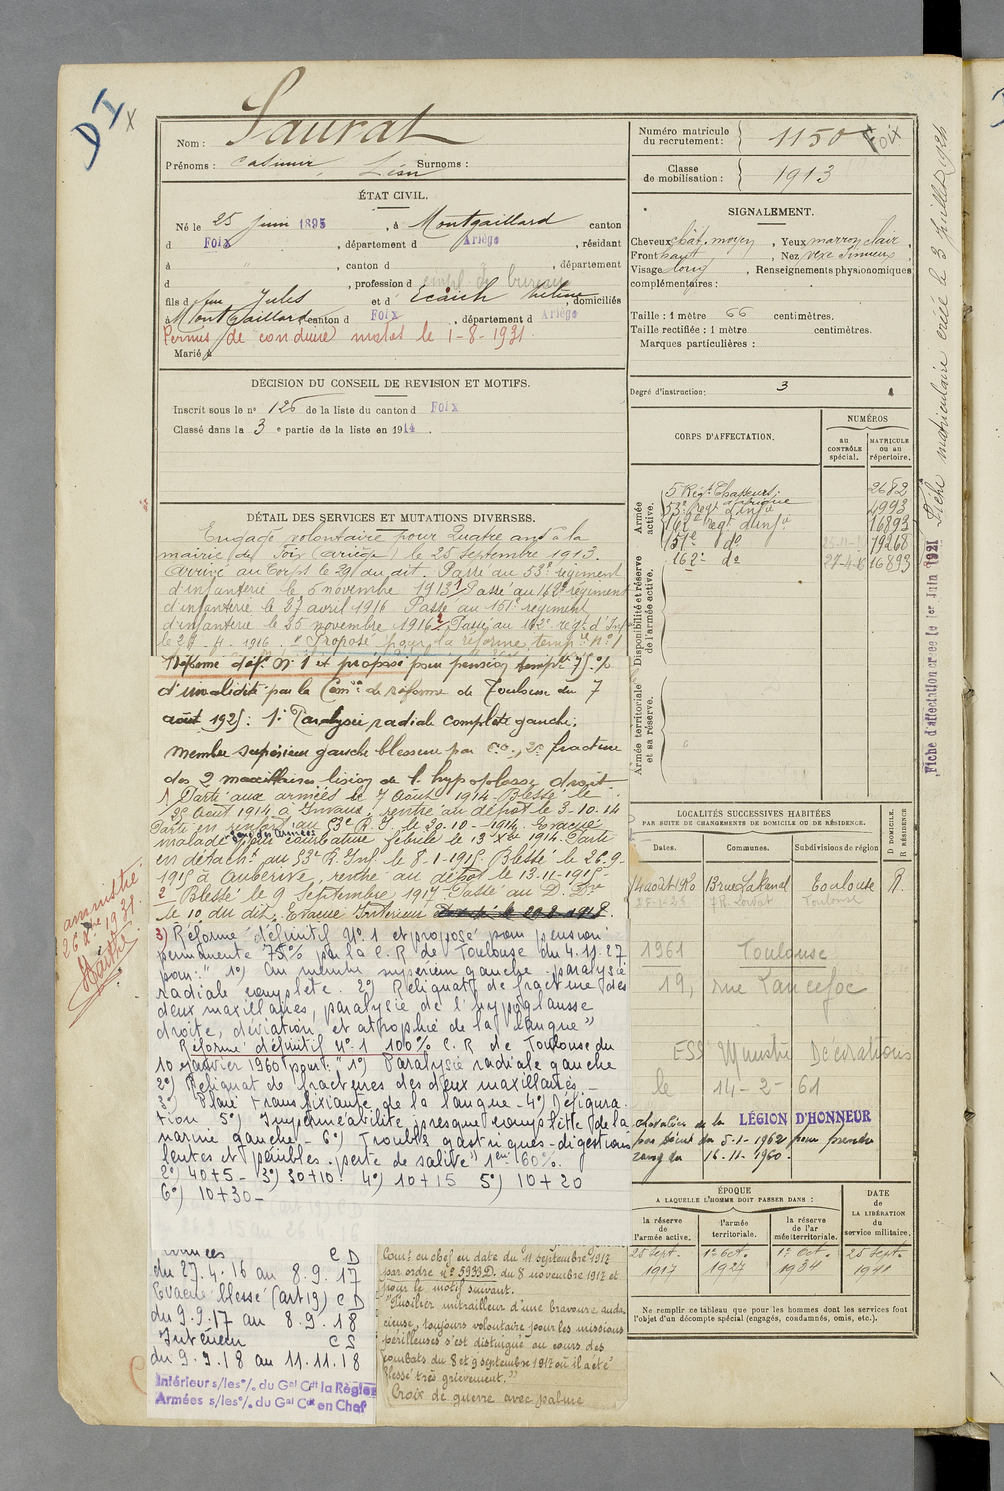 D I
X
Nom : Saurat
Prénoms : Casimir, Léon Surnoms :
ÉTAT CIVIL.
Né le 25 juin 1895, à Montgaillard canton
d Foix, département d Ariège, résidant
à " , canton d , département
d , profession d empl. de bureau
fils d feu Jules et d Ecaich Hélène, domiciliés
à Montgaillard, canton d Foix, département d Ariège
Permis de conduire motos le 1-8-1931.
Marié à
DÉCISION DU CONSEIL DE REVISION ET MOTIFS.
Inscrit sous le n° 126 de la liste du canton d Foix
Classé dans la 3 e partie de la liste en 1914.
DÉTAIL DES SERVICES ET MUTATIONS DIVERSES.
Engagé volontaire pour quatre ans à la
mairie de Foix (Ariège) le 25 septembre 1913.
Arrivé au Corps le 29 du dit. Passé au 53e régiment
d'infanterie le 6 novembre 1913. Passé au 162e régiment
d'infanterie le 27 avril 1916 Passé au 151e régiment
d'infanterie le 25 novembre 1916. Passé au 162e regt d'Inf
le 28 . 4 . 1916. Proposé pour la réforme tempre n° 1
Réforme défve N° 1 et proposé pour pension tempre 75 %
d'invalidité par la Comon de réforme de Toulouse du 7
août 1925 : 1° Paralysie radiale complète gauche,
membre supérieur gauche blessure par é.o., 2° fracture
des 2 maxillaires lésion de l'hypoglosse droit.
1 Parti aux armées le 7 Août 1914. Blessé le
22 Août 1914 à Invaux, rentré au dépôt le 3.10.14
Parti en renfort au 53e R.I. le 20-10-1914. Evacué
malade pour courbature fébrile le 13 Xbre 1914. Parti
en détacht au 53e R. Inf. le 8.1-1915. Blessé le 26-9-
1915 à Auberive, rentré au dépôt le 13-11-1915-
2 - Blessé le 9 Septembre 1917 Passé au D. Dre
le 10 du dit. Evacué Intérieur
amnistié
26 Xbre 1931.
3) Réformé définitif N° 1 et proposé pour pension
permanente 75% par la C. R de Toulouse du 4.11.27
pour : " 1°) Au membre supérieur gauche paralysie
radiale complète. 2°) Reliquat de fracture des
deux maxillaires, paralysie de l'hypoglosse
droite, déviation et atrophie de la langue "
Réformé définitif N° 1 100% C. R de Toulouse du
10 janvier 1960 pour : " 1°) Paralysie radiale gauche
2°) Reliquat de fractures des deux maxillaires -
3°) Plaie transfixiante de la langue - 4°) Défigura-
tion 5°) Imperméabilité presque complète de la
narine gauche - 6°) Troubles gastriques - digestions
lentes et pénibles. perte de salive " 1ent 60%.
2°) 40+5 - 3°) 30+10 4°) 10+15 5°) 10+20
6°) 10+30 -
Armées C D
du 27.4.16 au 8.9.17
Evacué blessé (art 19) C D
du 9.9.17 au 8.9.18
Intérieur C S
du 9.9.18 au 11.11.18
Intérieur s/les %. du Gal Cdt la Région
Armées s/les %. du Gal Cdt en Chef
Comt en chef en date du 11 septembre 1917
par ordre n° 5933 D. du 8 novembre 1917 et
pour le motif suivant.
"Fusilier mitrailleur d'une bravoure auda-
cieuse, toujours volontaire pour les missions
périlleuses s'est distingué au cours des
combats du 8 et 9 septembre 1917 où il a été
blessé très grièvement."
Croix de guerre avec palme
Numéro matricule du recrutement : 1150 Foix
Classe de mobilisation : 1913
SIGNALEMENT.
Cheveux chât. moyen, Yeux marron clair,
Front haut, Nez vexe sinueux,
Visage long, Renseignements physionomiques
complémentaires :
Taille : 1 mètre 66 centimètres.
Taille rectifiée : 1 mètre centimètres.
Marques particulières :
Degré d'instruction : 3
CORPS D'AFFECTATION.
NUMÉROS
au CONTRÔLE spécial.
MATRICULE ou au répertoire.
Armée active.
5 Régt Chasseurs d'Afrique 2682
53e Regt d'Infie 4993
162e Regt d'Infie 16893
151e do 19268
162e do 16893
Disponibilité et réserve de l'armée active.
Armée territoriale et sa réserve.
LOCALITÉS SUCCESSIVES HABITÉES
PAR SUITE DE CHANGEMENTS DE DOMICILE OU DE RÉSIDENCE.
Dates. Communes. Subdivisions de région D DOMICILE. R RÉSIDENCE
13 rue Lakanal Toulouse R.
Toulouse
1961 Toulouse
19, rue Lancefoc
ESS Ministre Décorations
le 14-2-61
Chevalier de la LÉGION D'HONNEUR
par décret du 5-1-1962 pour prendre
rang du 16-11-1960.
ÉPOQUE
A LAQUELLE L'HOMME DOIT PASSER DANS :
DATE DE LA LIBÉRATION du service militaire.
la réserve de l'armée active. l'armée territoriale. la réserve de l'armée territoriale.
25 Sept. 1917 1er Oct. 1927 1er Oct. 1934 25 Sept. 1941
Ne remplir ce tableau que pour les hommes dont les services font
l'objet d'un décompte spécial (engagés, condamnés, omis, etc.).
Fiche matriculaire créée le 3 juillet 1924
Fiche d'affectation créée le 1er Juin 1921